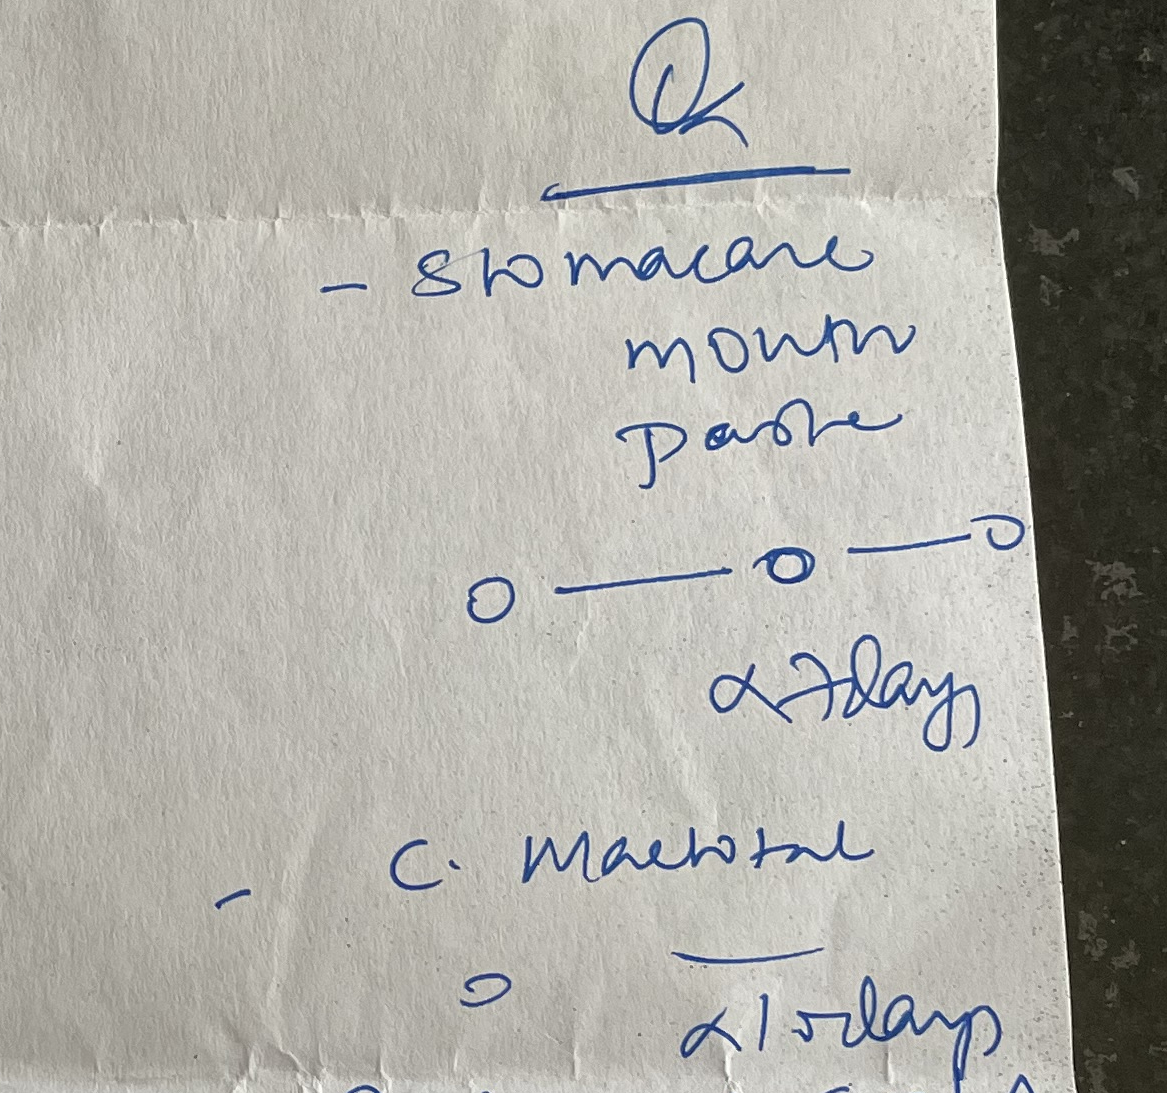 Rx
- Stomacare
mouth
paste
0 — 0 — 0
x 7 days
- C. Mactotal
0 —
days